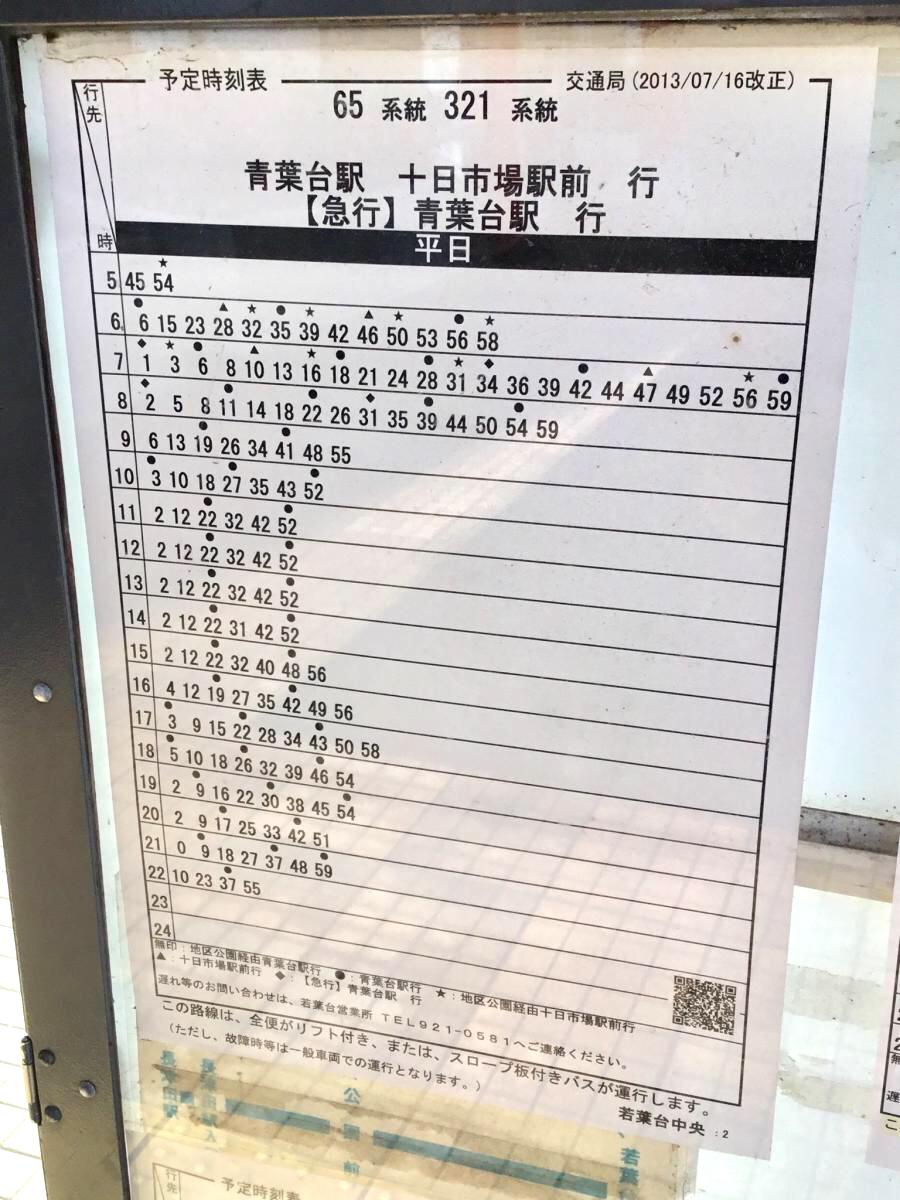 予定時刻表 交通局(2013/07/16改正)
行先
65 系統 321 系統
青葉台駅 十日市場駅前 行
【急行】青葉台駅 行
時 平日
★
5 45 54
● ▲ ★ ● ★ ▲ ★ ● ★
6 6 15 23 28 32 35 39 42 46 50 53 56 58
◆ ★ ● ▲ ★ ● ● ★ ◆ ● ▲ ★ ●
7 1 3 6 8 10 13 16 18 21 24 28 31 34 36 39 42 44 47 49 52 56 59
◆ ● ● ◆ ● ●
8 2 5 8 11 14 18 22 26 31 35 39 44 50 54 59
● ●
9 6 13 19 26 34 41 48 55
● ● ●
10 3 10 18 27 35 43 52
● ●
11 2 12 22 32 42 52
● ●
12 2 12 22 32 42 52
● ●
13 2 12 22 32 42 52
● ●
14 2 12 22 31 42 52
● ●
15 2 12 22 32 40 48 56
● ●
16 4 12 19 27 35 42 49 56
● ● ●
17 3 9 15 22 28 34 43 50 58
● ● ●
18 5 10 18 26 32 39 46 54
● ● ●
19 2 9 16 22 30 38 45 54
● ●
20 2 9 17 25 33 42 51
● ● ●
21 0 9 18 27 37 48 59
●
22 10 23 37 55
23
24
無印:地区公園経由青葉台駅行 ●:青葉台駅行 ★:地区公園経由十日市場駅前行
▲:十日市場駅前行 ◆:【急行】青葉台駅 行
遅れ等のお問い合わせは、若葉台営業所 TEL921-0581へご連絡ください。
この路線は、全便がリフト付き、または、スロープ板付きバスが運行します。
(ただし、故障時等は一般車両での運行となります。)
若葉台中央 :2
公園前
若葉
行先
予定時刻表